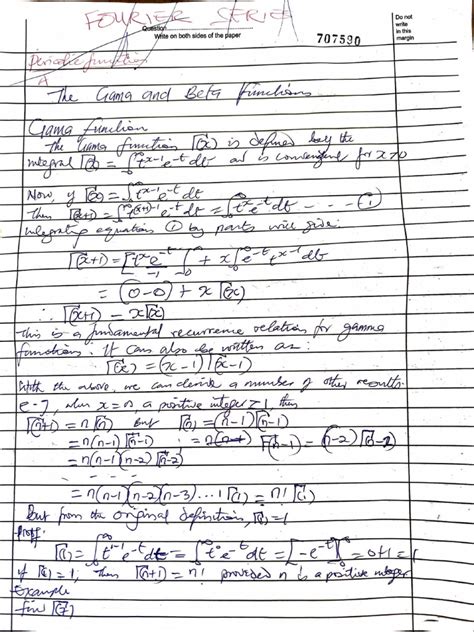 FOURIER SERIE
Question
Write on both sides of the paper
707590
Do not
write
in this
margin
Periodic function
A
The Gama and Beta functions
Gama function
The Gama function Γ(x) is defined by the
integral Γ(x) = ∫₀^∞ t^{x-1} e^{-t} dt and is convergent for x>0
Now, if Γ(x) = ∫₀^∞ t^{x-1} e^{-t} dt
Then Γ(x+1) = ∫₀^∞ t^{(x+1)-1} e^{-t} dt = ∫₀^∞ t^x e^{-t} dt - - - - - ①
integrating equation ① by parts will give:
Γ(x+1) = [t^x e^{-t}/-1]₀^∞ + x∫₀^∞ e^{-t} t^{x-1} dt
= (0-0) + xΓ(x)
∴ Γ(x+1) = xΓ(x)
This is a fundamental recurrence relation for gamma
functions. It can also be written as
Γ(x) = (x-1)Γ(x-1)
With the above, we can derive a number of other results.
e.g, when x = n, a positive integer > 1 then
Γ(n+1) = nΓ(n) But Γ(n) = (n-1)Γ(n-1)
= n(n-1)Γ(n-1) Γ(n-1) = (n-2)Γ(n-2)
= n(n-1)(n-2)Γ(n-2)
= - - - - -
= n(n-1)(n-2)(n-3)...1Γ(1) = n!Γ(1)
But from the original definition, Γ(1) = 1
Proof:
Γ(1) = ∫₀^∞ t^{1-1} e^{-t} dt = ∫₀^∞ t^0 e^{-t} dt = [-e^{-t}]₀^∞ = 0+1 = 1
if Γ(1) = 1, Then Γ(n+1) = n! provided n is a positive integer
Example
fin Γ(7)